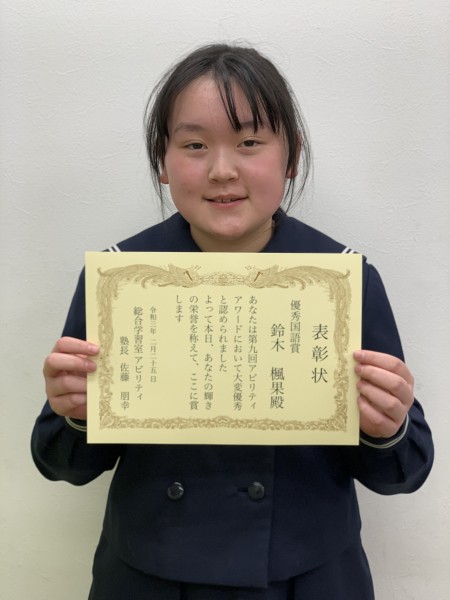 表彰状
優秀国語賞
鈴木 楓果殿
あなたは第九回アビリティ
アワードにおいて大変優秀
と認められました
よって本日、あなたの輝き
の栄誉を称えて、ここに賞
します
令和三年 二月二十五日
総合学習室 アビリティ
塾長 佐藤 朋幸